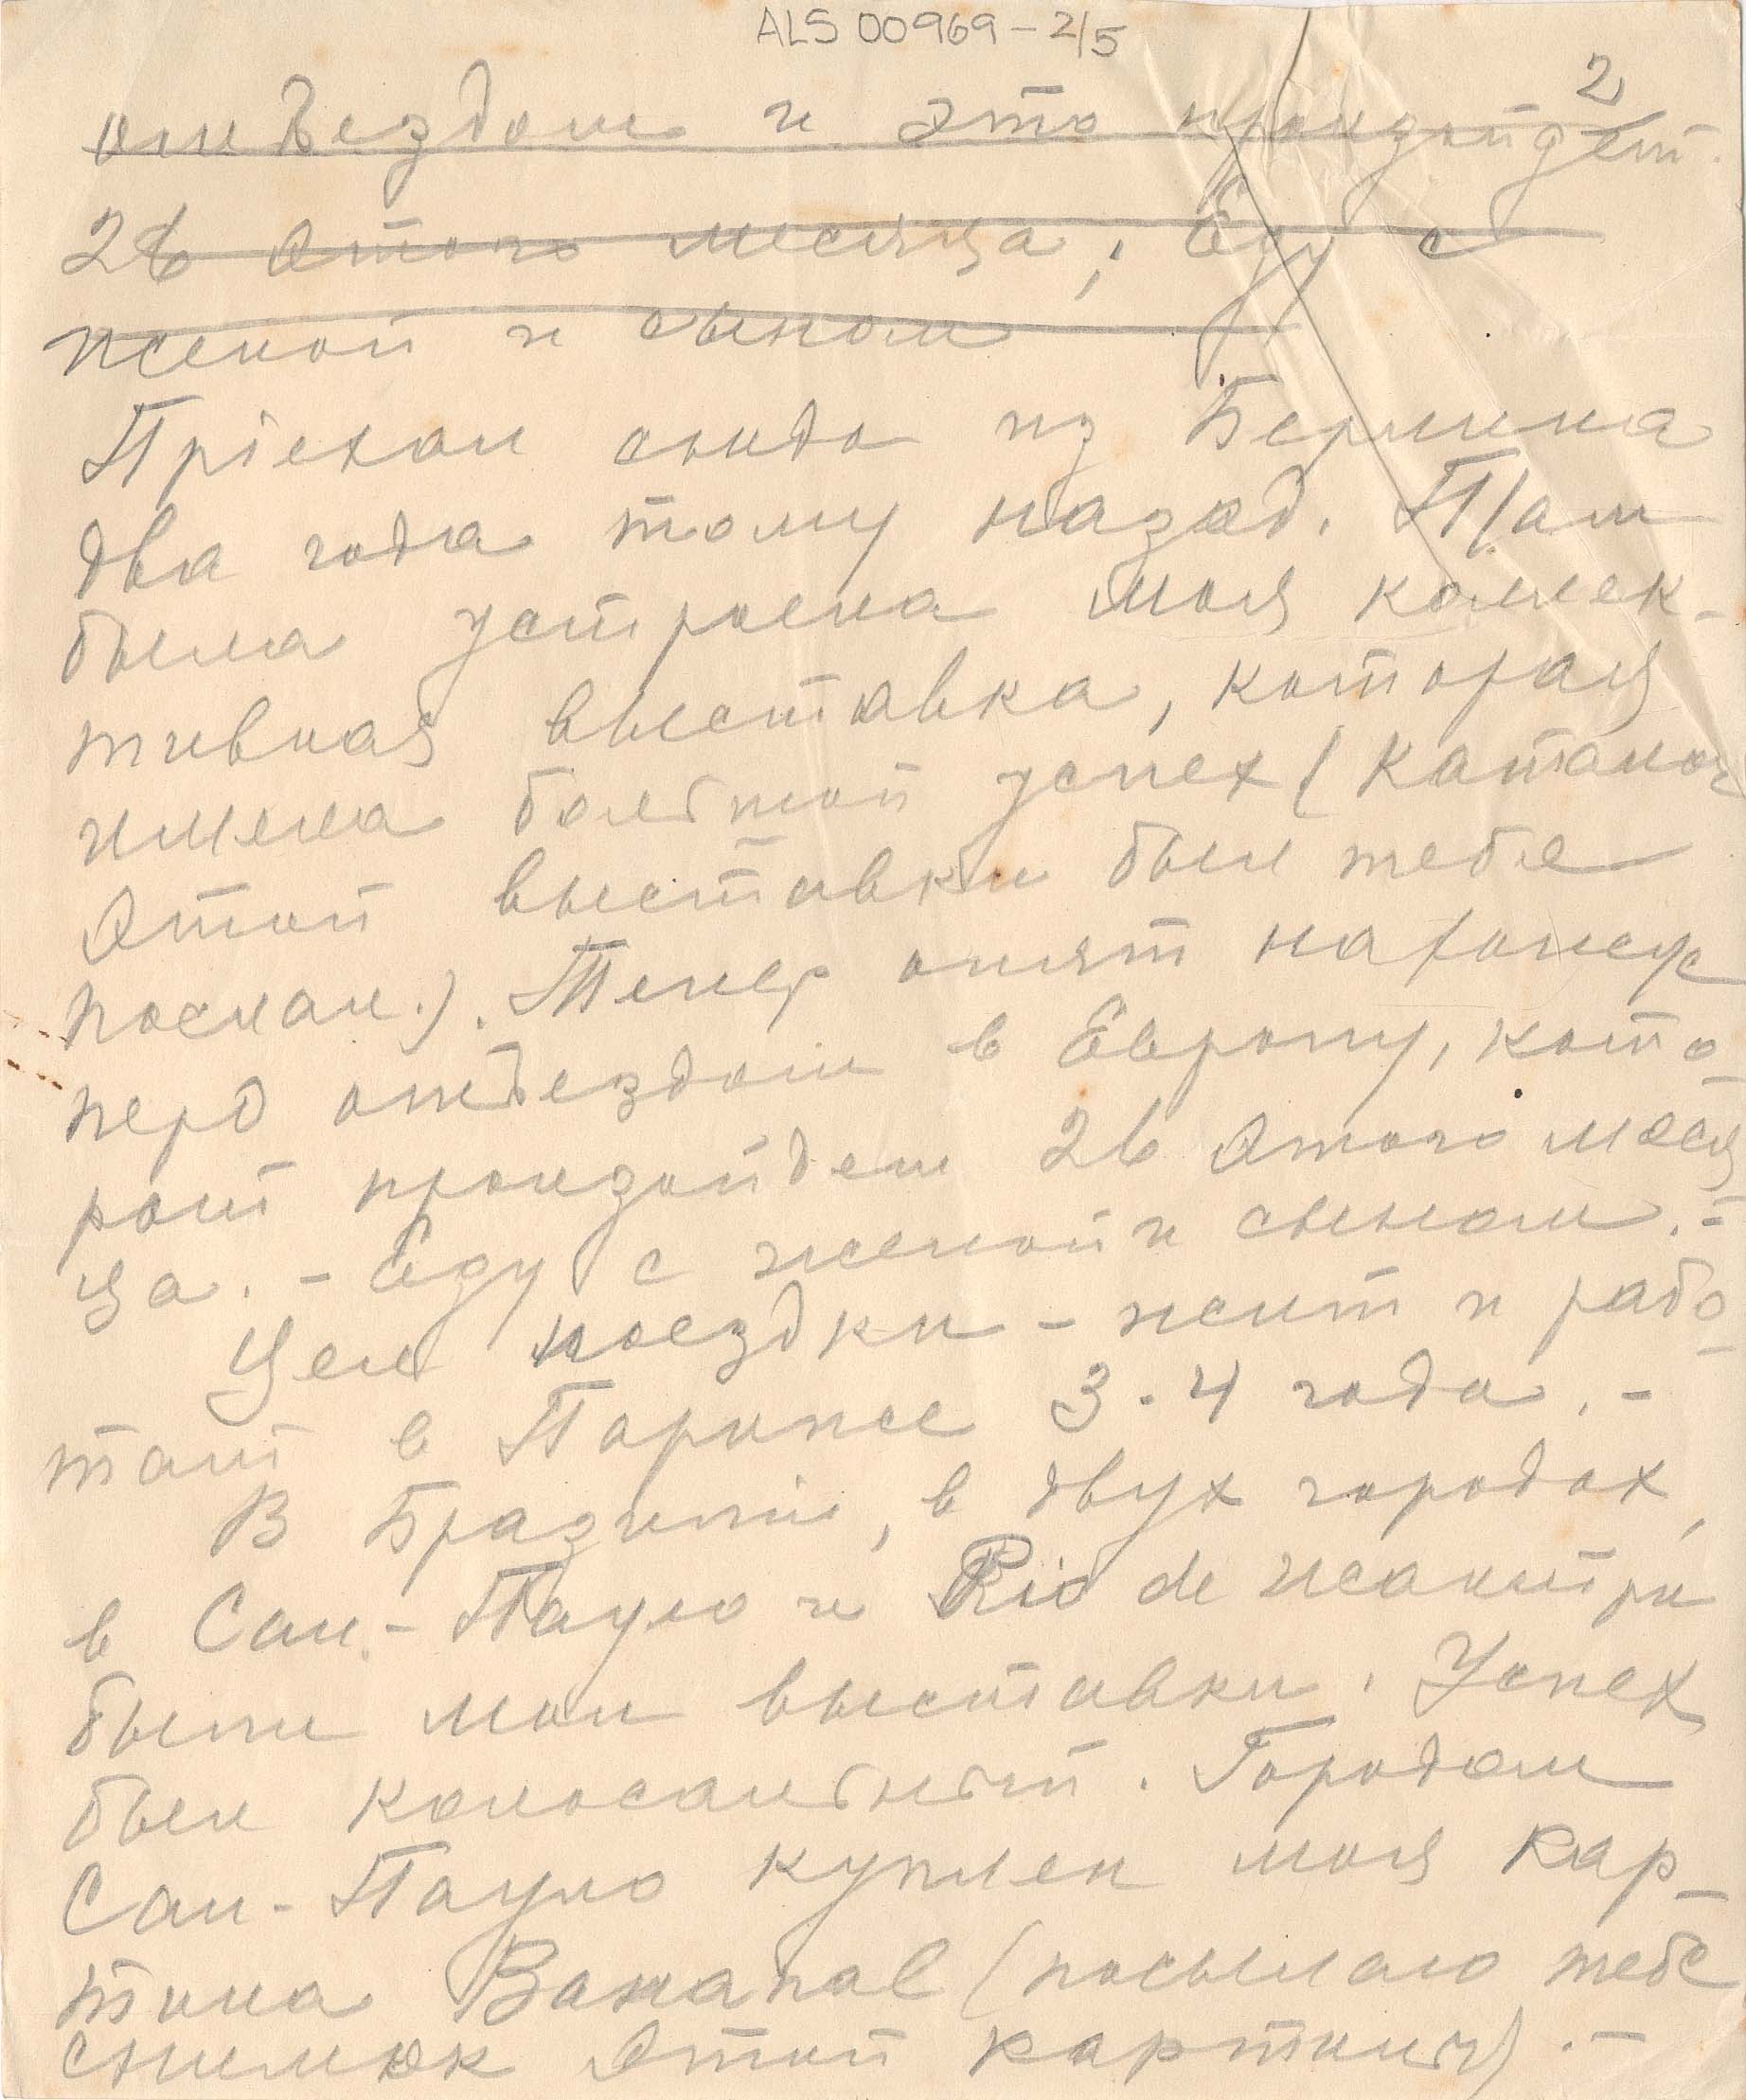 ALS 00969-2/5
2
отъездом и это произойдет
26 этого месяца; Еду с
женой и сыном
Пріехал сюда из Берлина
два года тому назад. Там
была устроена моя коллек-
тивная выставка, которая
имела большой успех (Каталог
этой выставки был тебе
послан.). Тепер опят нахожус
перд отъездом в Европу, кото-
рой произойдет 26 этого меся
ца. - Еду с женой и сыном. -
Цел поездки - жит и рабо-
тат в Париже 3-4 года. -
В Бразиліи, в двух городах,
в Сан-Пауло и Rio de Жанейро
были мои выставки. Успех
был колосальный. Городом
Сан-Пауло куплен моя кар-
тина Bananal (посылаю тебе
снимок этой картины). -